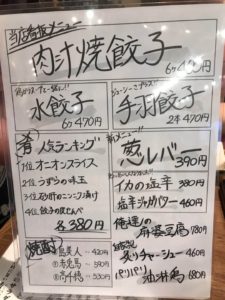 当店看板メニュー
肉汁焼餃子
6ヶ490円
水餃子
6ヶ470円
手羽餃子
2本470円
肴 人気ランキング
1位 オニオンスライス
2位 うずらの味玉
3位 砂肝のニンニク漬け
4位 餃子の皮せんべい
各380円
焼酎
420円
590円
530円
新メニュー!
葱レバー
390円
イカの塩辛 380円
塩辛ジャガバター 460円
俺達の
麻婆豆腐 780円
炙りチャーシュー 460円
パリパリ
油淋鶏 680円